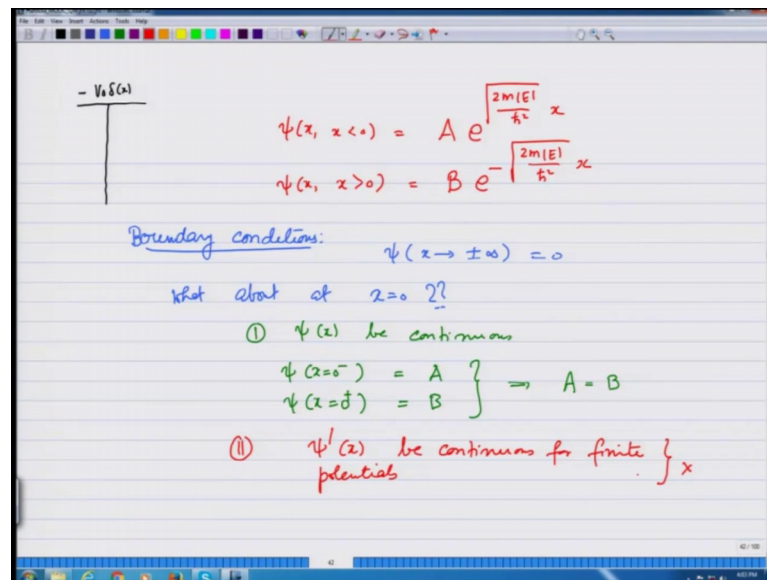 File Edit View Insert Actions Tools Help
- V₀δ(x)
ψ(x, x<0) = A e^{√(2m|E|/ħ²) x}
ψ(x, x>0) = B e^{-√(2m|E|/ħ²) x}
Boundary conditions:
ψ(x→ ±∞) = 0
What about at x=0 ??
I ψ(x) be continuous
ψ(x=0⁻) = A
ψ(x=0⁺) = B } ⇒ A = B
II ψ'(x) be continuous for finite
potentials } x
42
42/100
4:03 PM